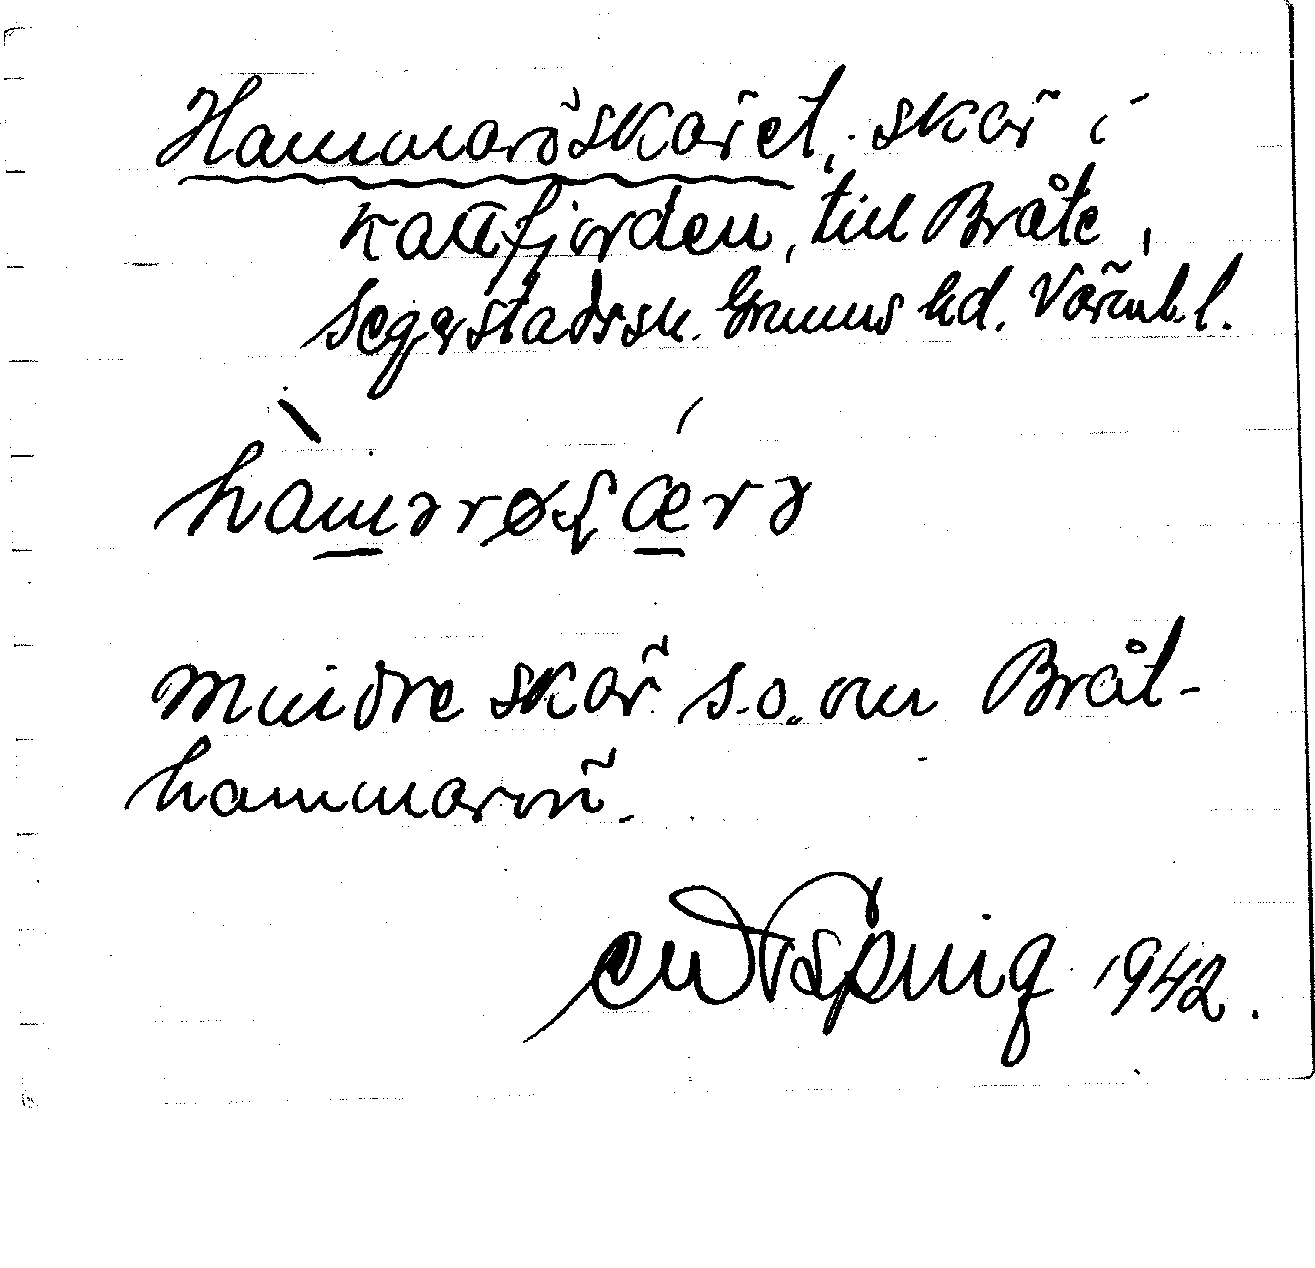 Hammaröskäret, skär i
Kattfjorden, till Bråte,
Segerstads sn. Grums hd. Värml.
hàmərøʃǽrə
mindre skär s.o. om Bråt-
hammarön.
1942.